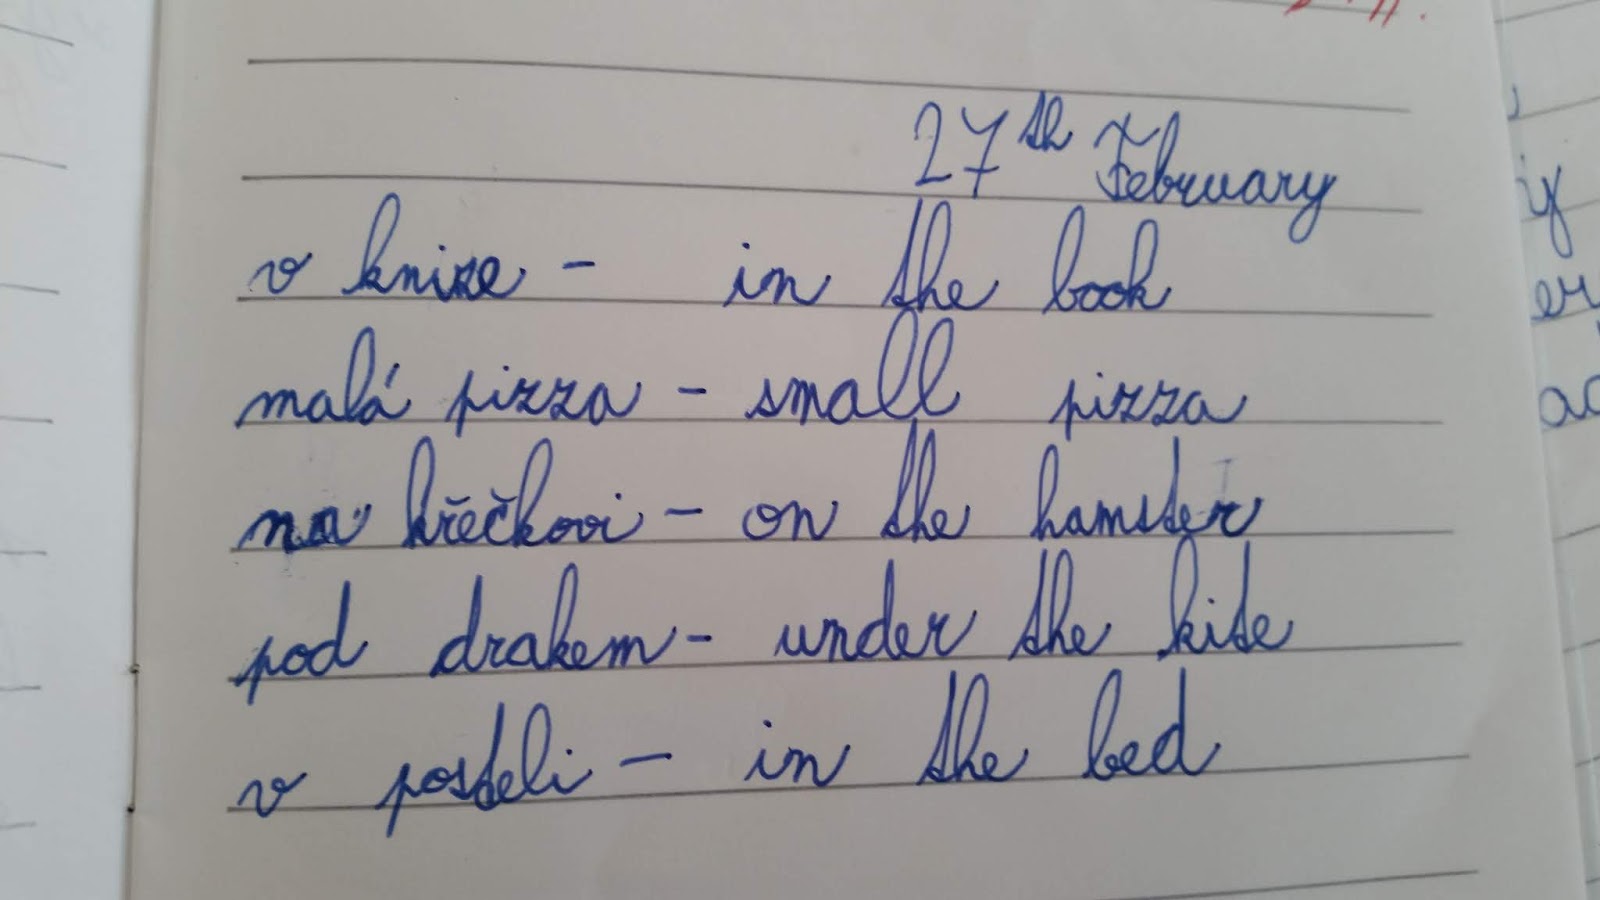 27th February
v knize - in the book
malá pizza - small pizza
na křečkovi - on the hamster
pod drakem - under the kite
v posteli - in the bed